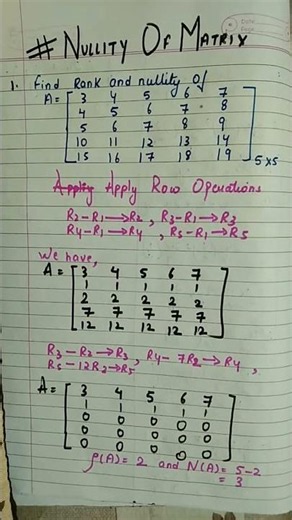 # NULLITY OF MATRIX
1. Find Rank and nullity of
A = [ 3 4 5 6 7
4 5 6 7 8
5 6 7 8 9
10 11 12 13 14
15 16 17 18 19 ] 5×5
Apply Apply Row Operations
R2-R1→R2, R3-R1→R3
R4-R1→R4, R5-R1→R5
We have,
A = [ 3 4 5 6 7
1 1 1 1 1
2 2 2 2 2
7 7 7 7 7
12 12 12 12 12 ]
R3-R2→R3, R4-7R2→R4,
R5-12R2→R5
A = [ 3 4 5 6 7
1 1 1 1 1
0 0 0 0 0
0 0 0 0 0
0 0 0 0 0 ]
ρ(A) = 2 and N(A) = 5-2
= 3